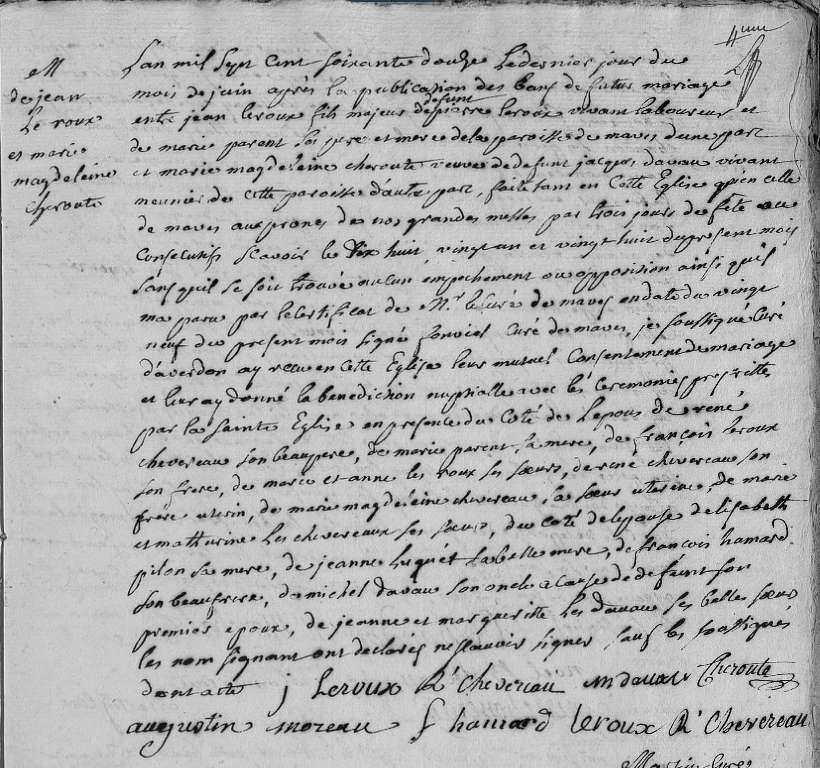 M
de jean
Le roux
et marie
magdeleine
cheroute
Lan mil Sept Cent Soixante douze Le dernier jour du
mois de juin après la publication des bans de futur mariage
entre jean leroux fils majeur de defunt pierre leroux vivant laboureur et
de marie parent ses pere et mere de la paroisse de maves dune part
et marie magdeleine cheroute veuve de defunt jacques davau vivant
meunier de cette paroisse d'autre part, faite tant en Cette Eglise qu'en celle
de maves aux prones de nos grandes messes par trois jours de fête
Consecutifs scavoir le dix huit, vingt un et vingt huit du present mois
sans quil se soit trouvé aucun empechement ou opposition ainsi quil
ma paru par le Certificat de Mr. le Curé de maves en date du vingt
neuf du present mois signé Curé de maves, je soussigné Curé
d'averdon ay recu en Cette Eglise leur mutuel Consentement de mariage
et leur ay donné la benediction nuptialle avec les Ceremonies prescrittes
par la Sainte Eglise en presence du Coté de Lepoux de rené
chevereau son beaupere, de marie parent sa mere, de françois leroux
son frere, de marie et anne les roux ses sœurs, de rené chevereau son
frere uterin, de marie magdeleine chevereau sa sœur uterine, de marie
et mathurine les chevereaux ses sœurs, du coté de lepouse delisabeth
pilon sa mere, de jeanne huguet sa belle mere, de françois hamard
son beaufrere, de michel davau son oncle a Cause de defunt son
premier epoux, de jeanne et marguerite les davau ses belles sœurs
les non signant ont declarés ne scavoir signer sauf les soussignés
dont acte j Leroux R Chevereau m davau Cheroute
augustin moreau f hamard leroux R Chevereau
Martin Curé